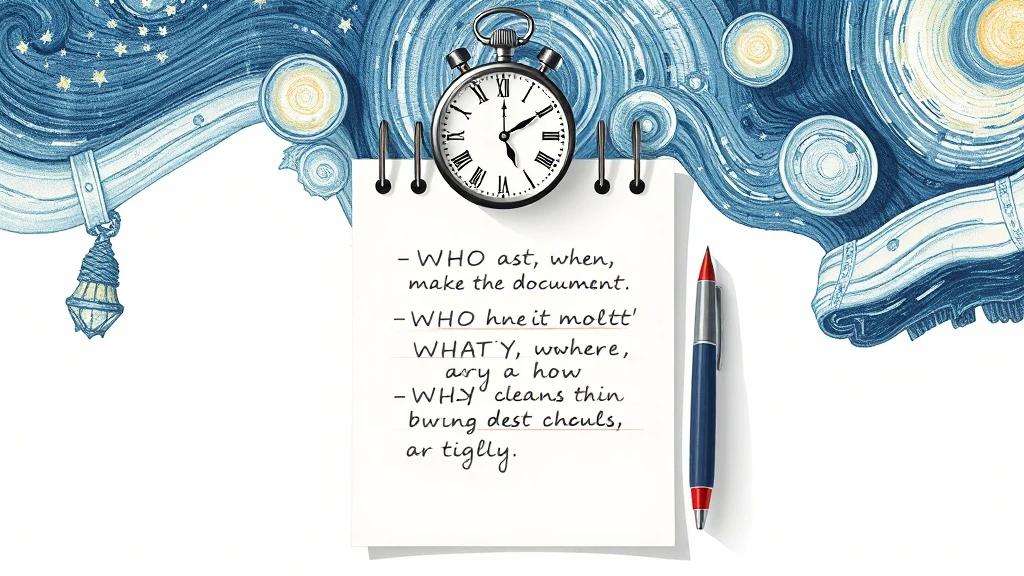 – WHO ast, when,
make the document.
– WHO hneit moltt'
WHAT'Y, wwhere,
ary a how
– WHY cleans thin
bwung dest chculs,
ar tiglly.